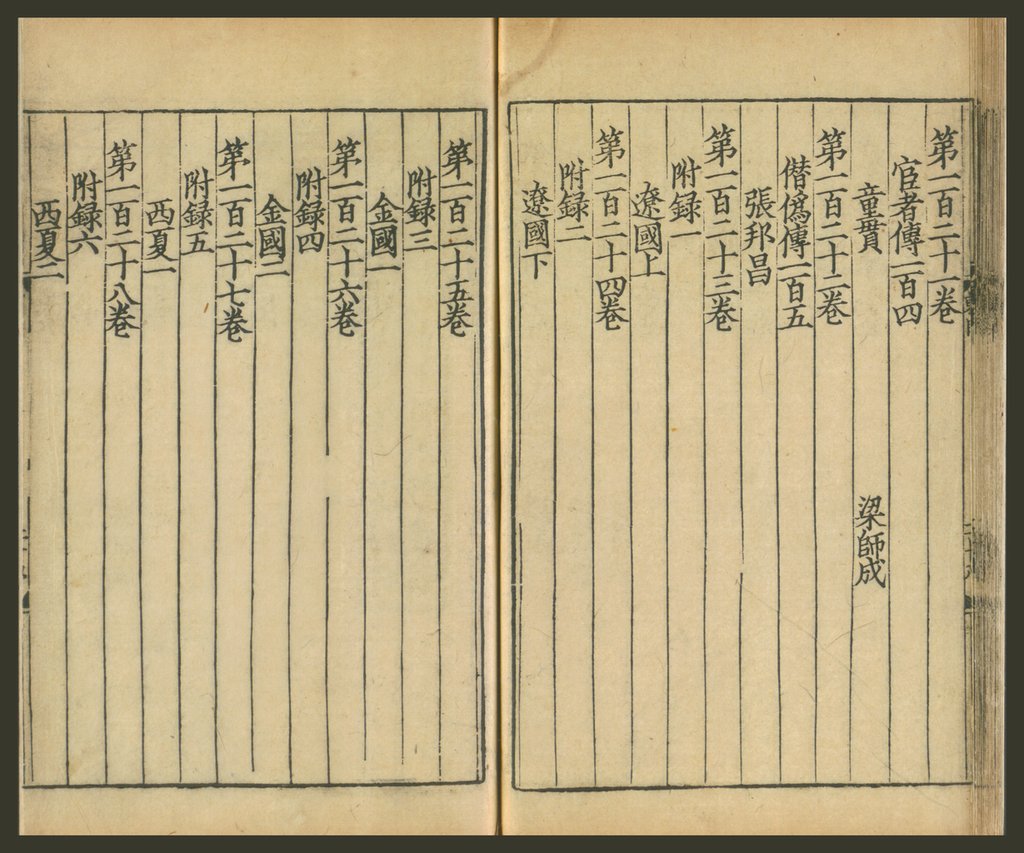 第一百二十一卷
官者傳一百四
童貫　梁師成
第一百二十二卷
僭僞傳一百五
張邦昌
第一百二十三卷
附録一
遼國上
第一百二十四卷
附録二
遼國下
第一百二十五卷
附録三
金國一
第一百二十六卷
附録四
金國二
第一百二十七卷
附録五
西夏一
第一百二十八卷
附録六
西夏二